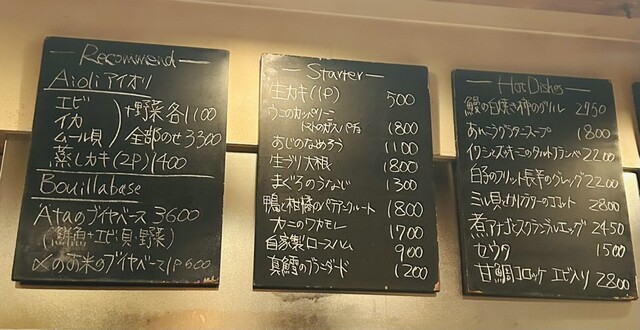 Recommend
Aioli アイオリ
エビ
イカ
ムール貝
+野菜 各1100
全部のせ 3300
蒸しカキ(2P) 1400
Bouillabase
Ataのブイヤベース 3600
(鮮魚+エビ・貝・野菜)
〆のお米のブイヤベース 1P 600
Starter
生カキ(1P) 500
ウニのカッペリーニ
トマトのガスパチョ 1800
あじのなめろう 1100
生ブリ大根 1800
まぐろのうなじ 1300
鴨と柑橘のパテアンクルート 1800
カニのワカモレ 1700
自家製ロースハム 900
真鱈のブランダード 1200
Hot Dishes
鰻の白焼き 柿のグリル 2950
グラタンスープ 1800
2200
白子のフリット 2200
2800
煮アナゴとスクランブルエッグ 2450
1500
甘鯛コロッケ エビ入り 2800